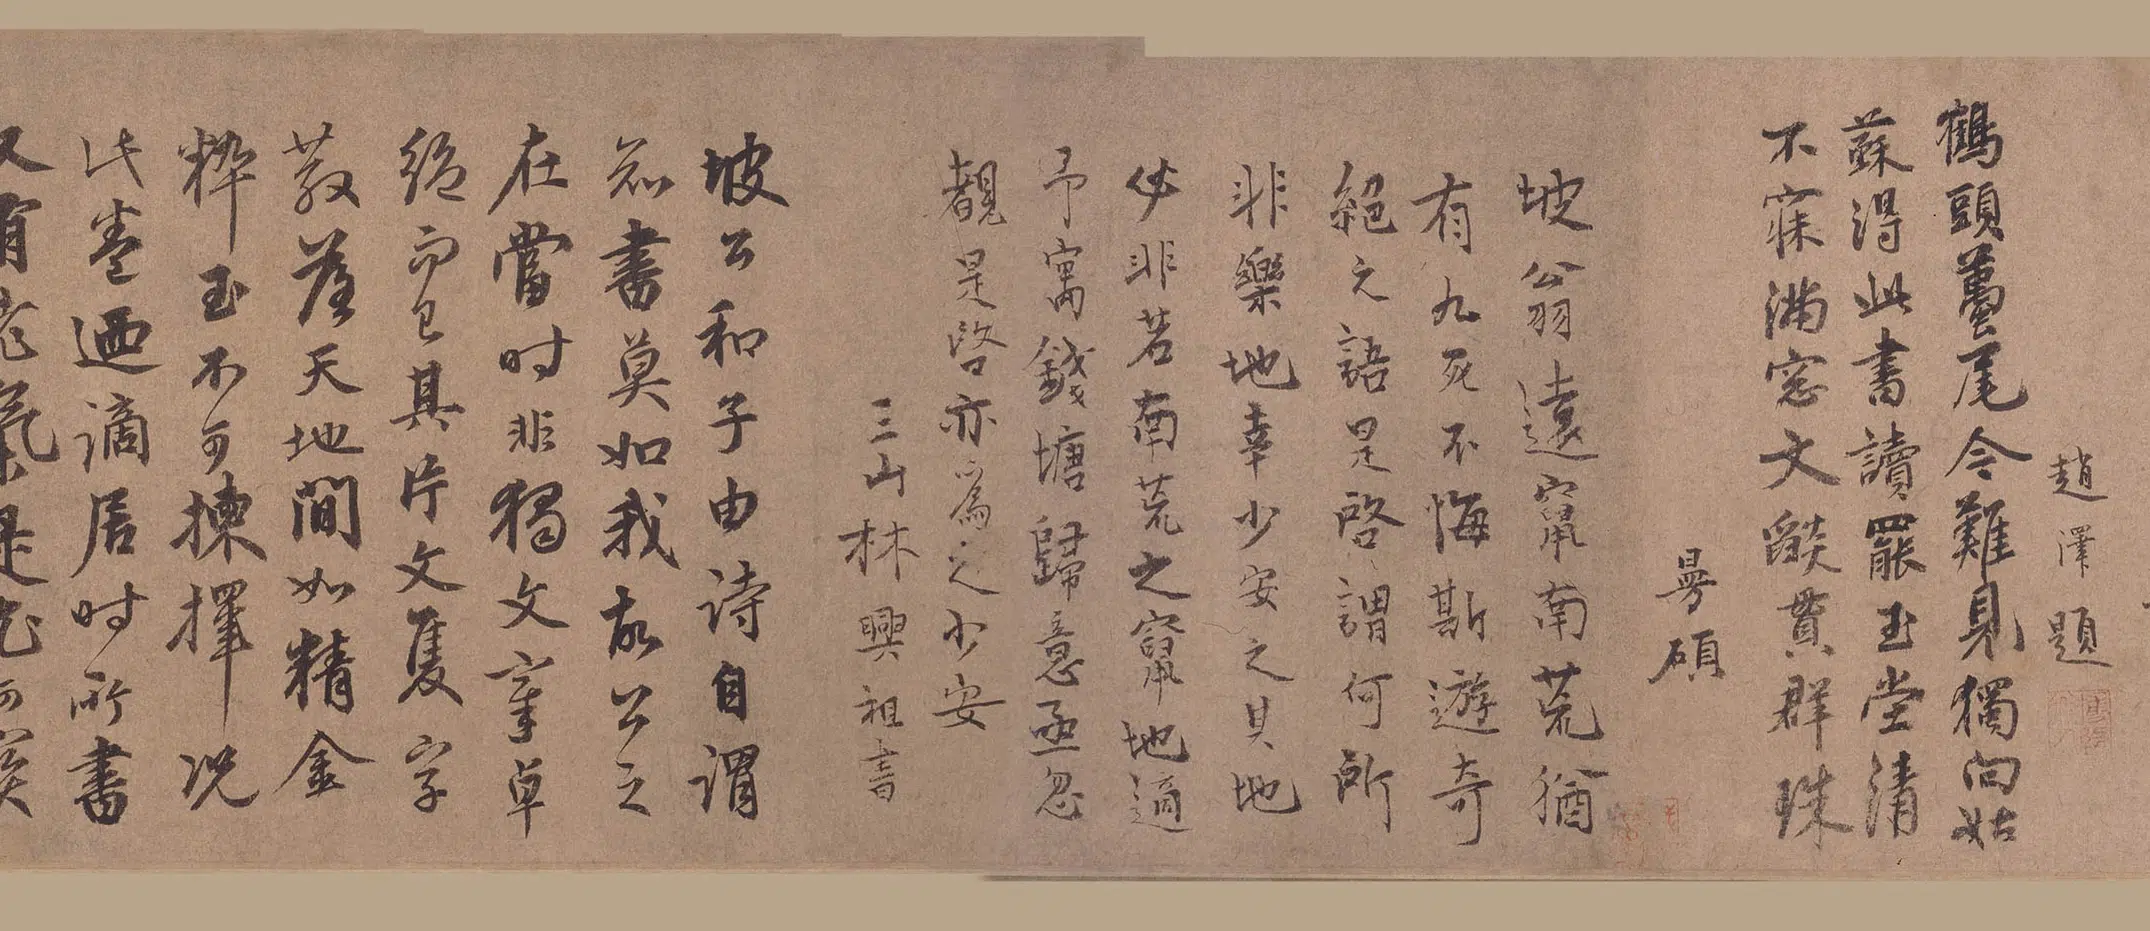 趙澤題
鶴頭蠆尾今難見獨向姑
蘇得此書讀罷玉堂清
不寐滿窓文燄貫群珠
碩
坡翁遠竄南荒猶
有九死不悔斯遊奇
絕之語是啓謂何所
非樂地幸少安之其地
必非若南荒之竄地適
予寓錢塘歸意亟忽
覩是啓亦為之少安
三山林興祖書
坡公和子由诗自謂
知書莫如我故公之
在當时非獨文章卓
絕而已其片文隻字
散落天地間如精金
粹玉不可揀擇况
此卷迺謫居时所書
又有老氣